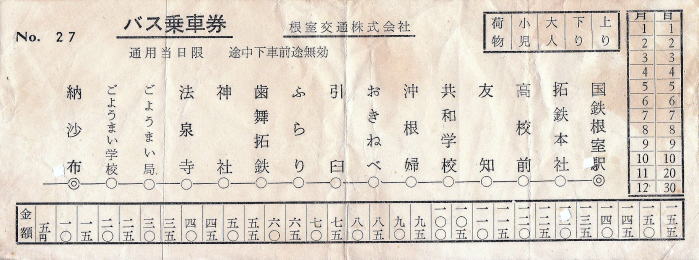 No. 27
バス乗車券
根室交通株式会社
通用当日限 途中下車前途無効
上り
下り
大人
小児
荷物
月 日
1 1
2 2
3 3
4 4
5 5
6 6
7 7
8 8
9 9
10 10
11 20
12 30
国鉄根室駅
拓鉄本社
高校前
友知
共和学校
沖根婦
おきねべ
引臼
ふらり
歯舞拓鉄
神社
法泉寺
ごようまい局
ごようまい学校
納沙布
金額
五円
一〇
一五
二〇
二五
三〇
三五
四〇
四五
五〇
五五
六〇
六五
七〇
七五
八〇
八五
九〇
九五
一〇〇
一〇五
一一〇
一一五
一二〇
一二五
一三五
一四〇
一四五
一五〇
一五五